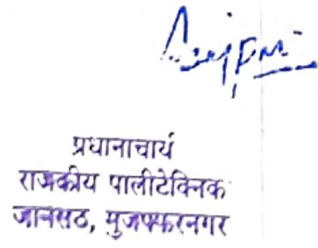 प्रधानाचार्य
राजकीय पालीटेक्निक
जानसठ, मुजफ्फरनगर